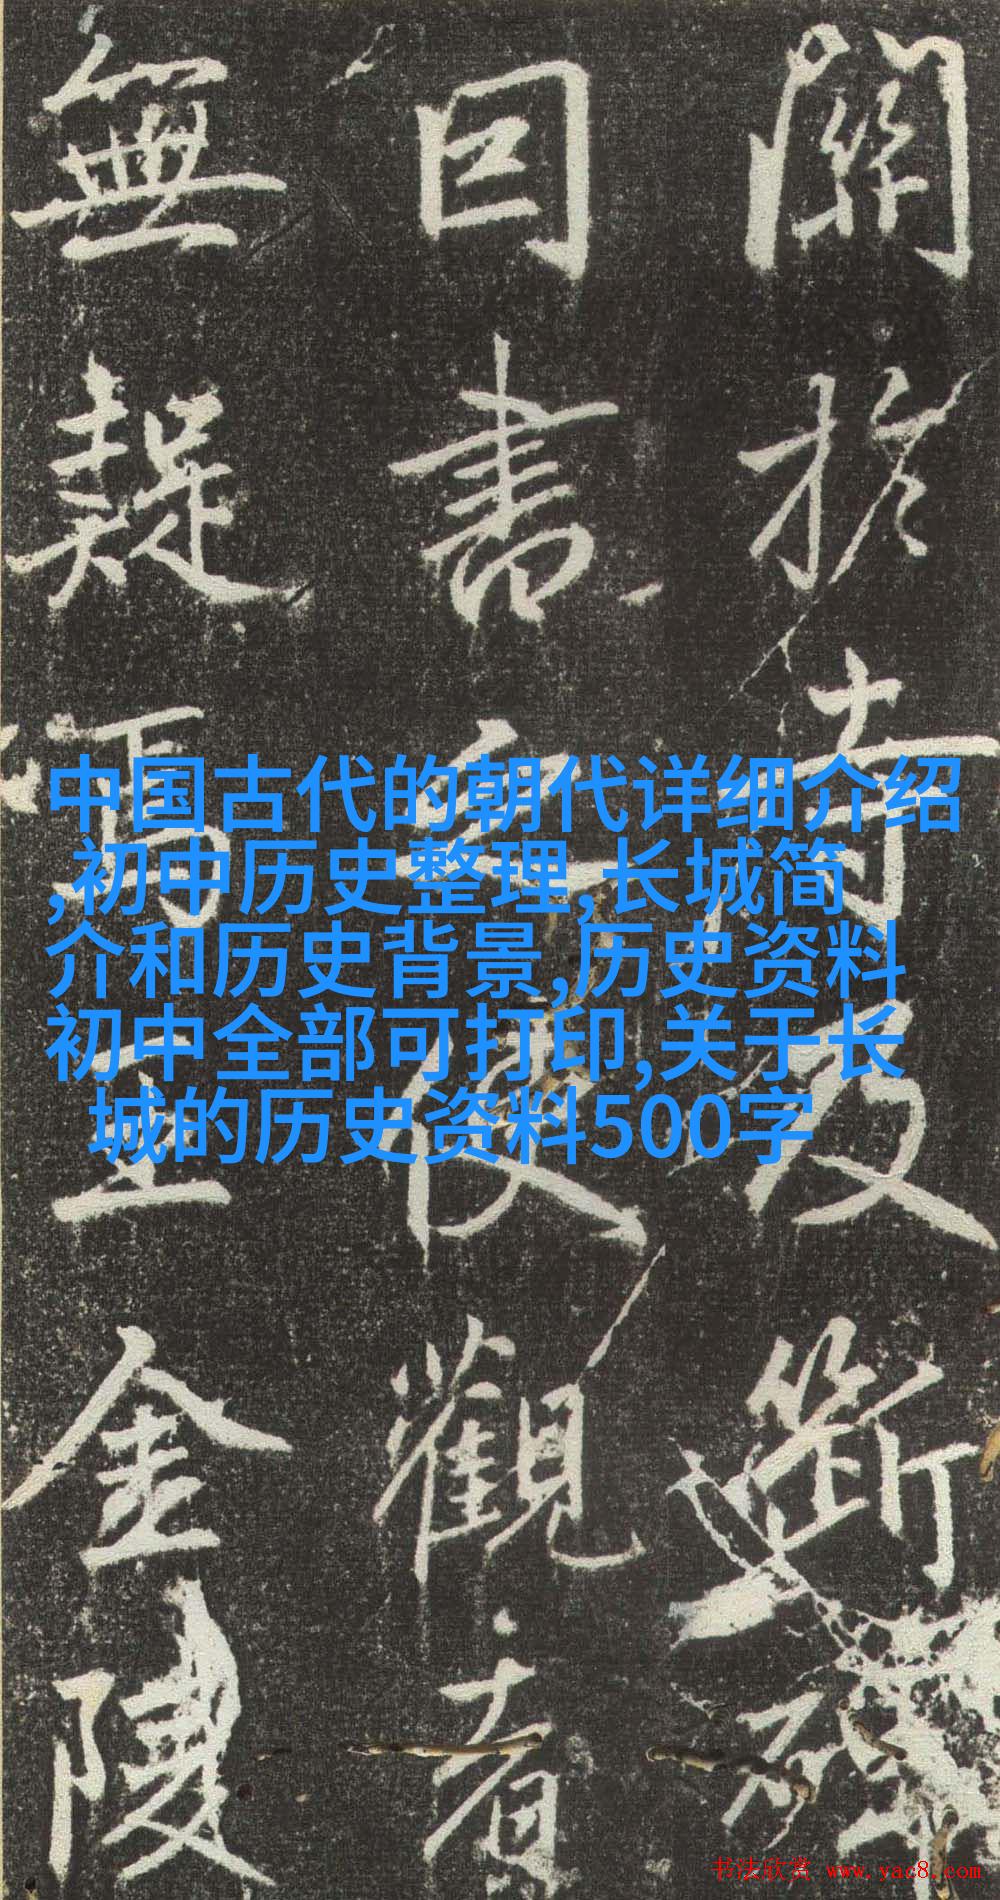 關於持及斷碑
因書之使觀者
無疑焉王金陵
中国古代的朝代详细介绍
,初中历史整理,长城简
介和历史背景,历史资料
初中全部可打印,关于长
城的历史资料500字
书法欣赏 www.yac8.com